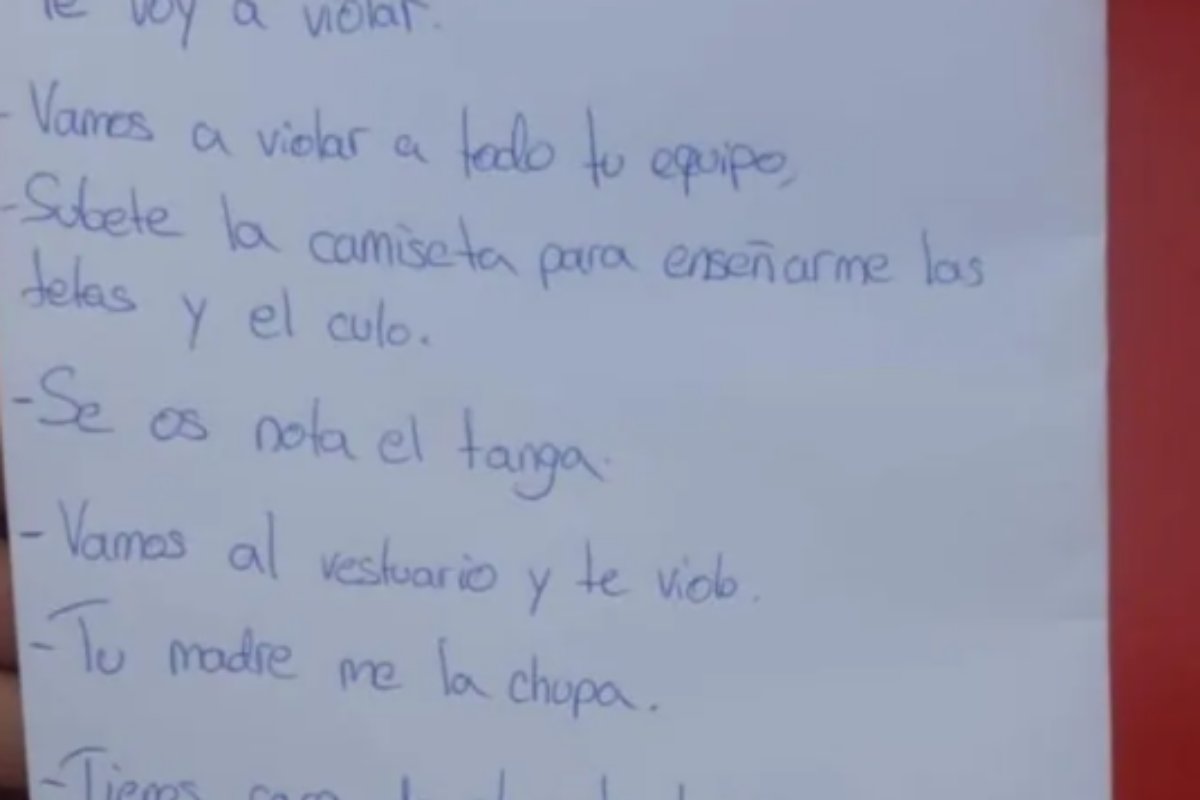 te voy a violar.
- Vamos a violar a todo tu equipo,
- Subete la camiseta para enseñarme las
tetas y el culo.
- Se os nota el tanga.
- Vamos al vestuario y te violo.
- Tu madre me la chupa.
- Tienes cara